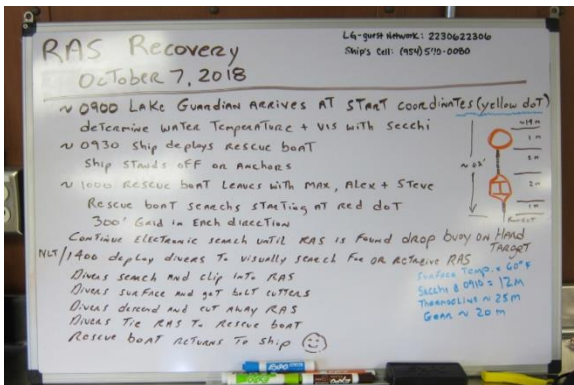 RAS Recovery
October 7, 2018
LG-guest Network: 2230622306
Ship's Cell: (954) 590-0080
~ 0900 LAKE GUARDIAN ARRIVES AT START COORDINATES (yellow dot)
determine WATER Temperature + VIS with Secchi
~ 0930 Ship deploys Rescue boat
Ship STANDS OFF OR ANCHORS
~ 1000 Rescue boat Leaves with MAX, Alex + Steve
Rescue boat searchs STARTING AT Red dot
300' Grid in Each direction
Continue Electronic search until RAS is found drop buoy on HARD
TARGET
NLT/1400 deploy divers To visually search for or retreive RAS
Divers search and clip into RAS
Divers surface and get bolt cutters
Divers descend and cut away RAS
Divers Tie RAS To Rescue boat
Rescue boat Returns To Ship
Surface Temp. = 60° F
Secchi @ 0910 = 12M
Thermocline ~ 25m
Gear ~ 20 m
2 m
2 m